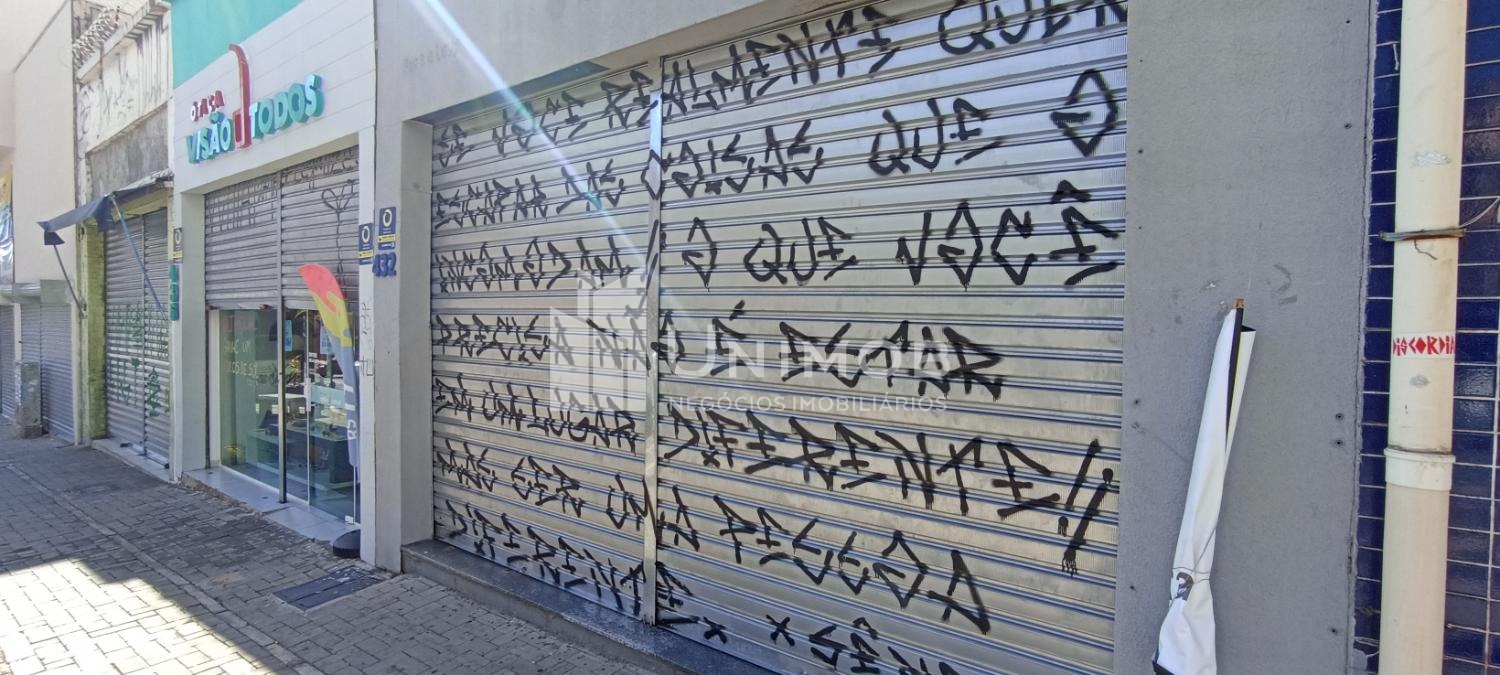 ÓTICA
VISÃO TODOS
432
SE VOCÊ REALMENTE QUER
ESCAPAR DAS COISAS QUE O
INCOMODAM, O QUE VOCÊ
PRECISA NÃO É ESTAR
EM UM LUGAR DIFERENTE,
MAS SER UMA PESSOA
DIFERENTE
UNIMOB
NEGÓCIOS IMOBILIÁRIOS
DISCORDIA